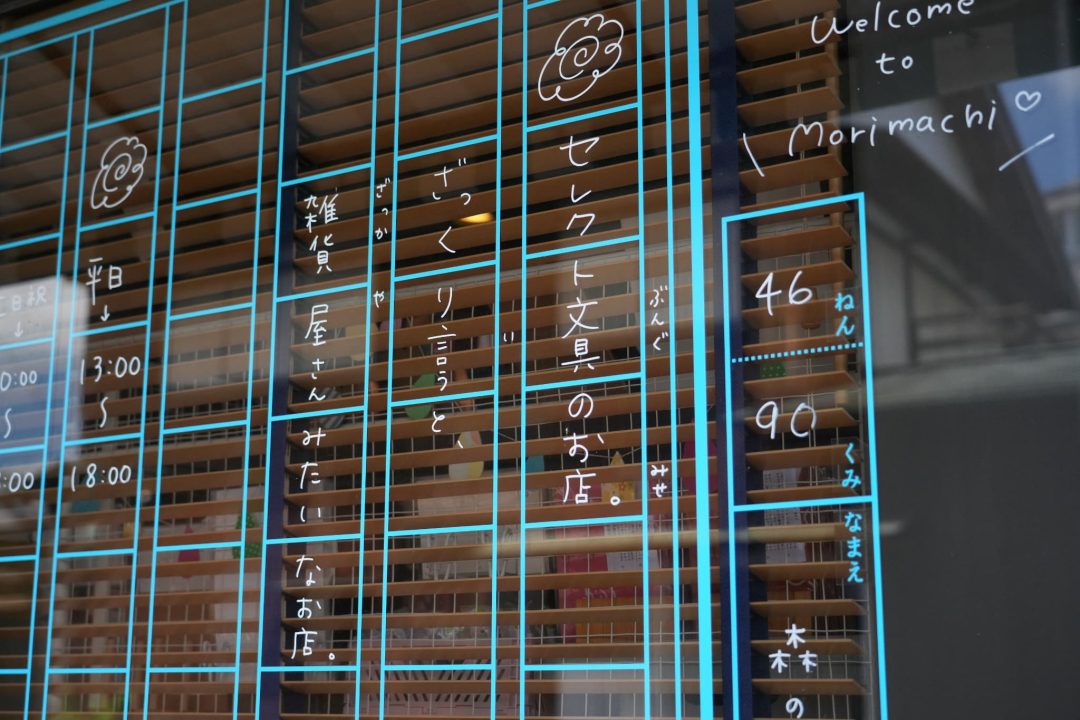 Welcome
to
Morimachi♡
46 ねん
90 くみ
なまえ
森の
ぶんぐ みせ
セレクト文具のお店。
い
ざっくり言うと、
ざっか や
雑貨屋さんみたいなお店。
平日
↓
13:00
〜
18:00
日祝
↓
0:00
〜
:00